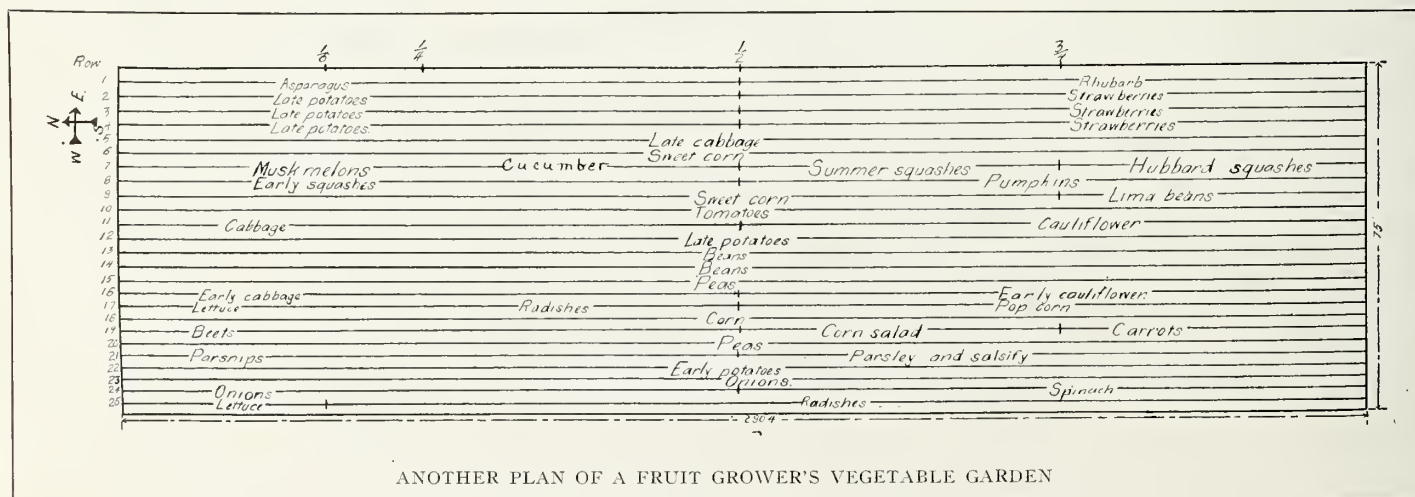 1/8 1/4 1/2 3/4
Row
N E. S. W
1 Asparagus Rhubarb
2 Late potatoes Strawberries
3 Late potatoes Strawberries
4 Late potatoes Strawberries
5 Late cabbage
6 Sweet corn
7 Musk melons Cucumber Summer squashes Hubbard squashes
8 Early squashes Pumpkins
9 Sweet corn Lima beans
10 Tomatoes
11 Cabbage Cauliflower
12 Late potatoes
13 Beans
14 Beans
15 Peas
16 Early cabbage Early cauliflower.
17 Lettuce Radishes Pop corn
18 Corn
19 Beets Corn salad Carrots
20 Peas
21 Parsnips Parsley and salsify
22 Early potatoes
23 Onions.
24 Onions Spinach
25 Lettuce Radishes
75
ANOTHER PLAN OF A FRUIT GROWER'S VEGETABLE GARDEN